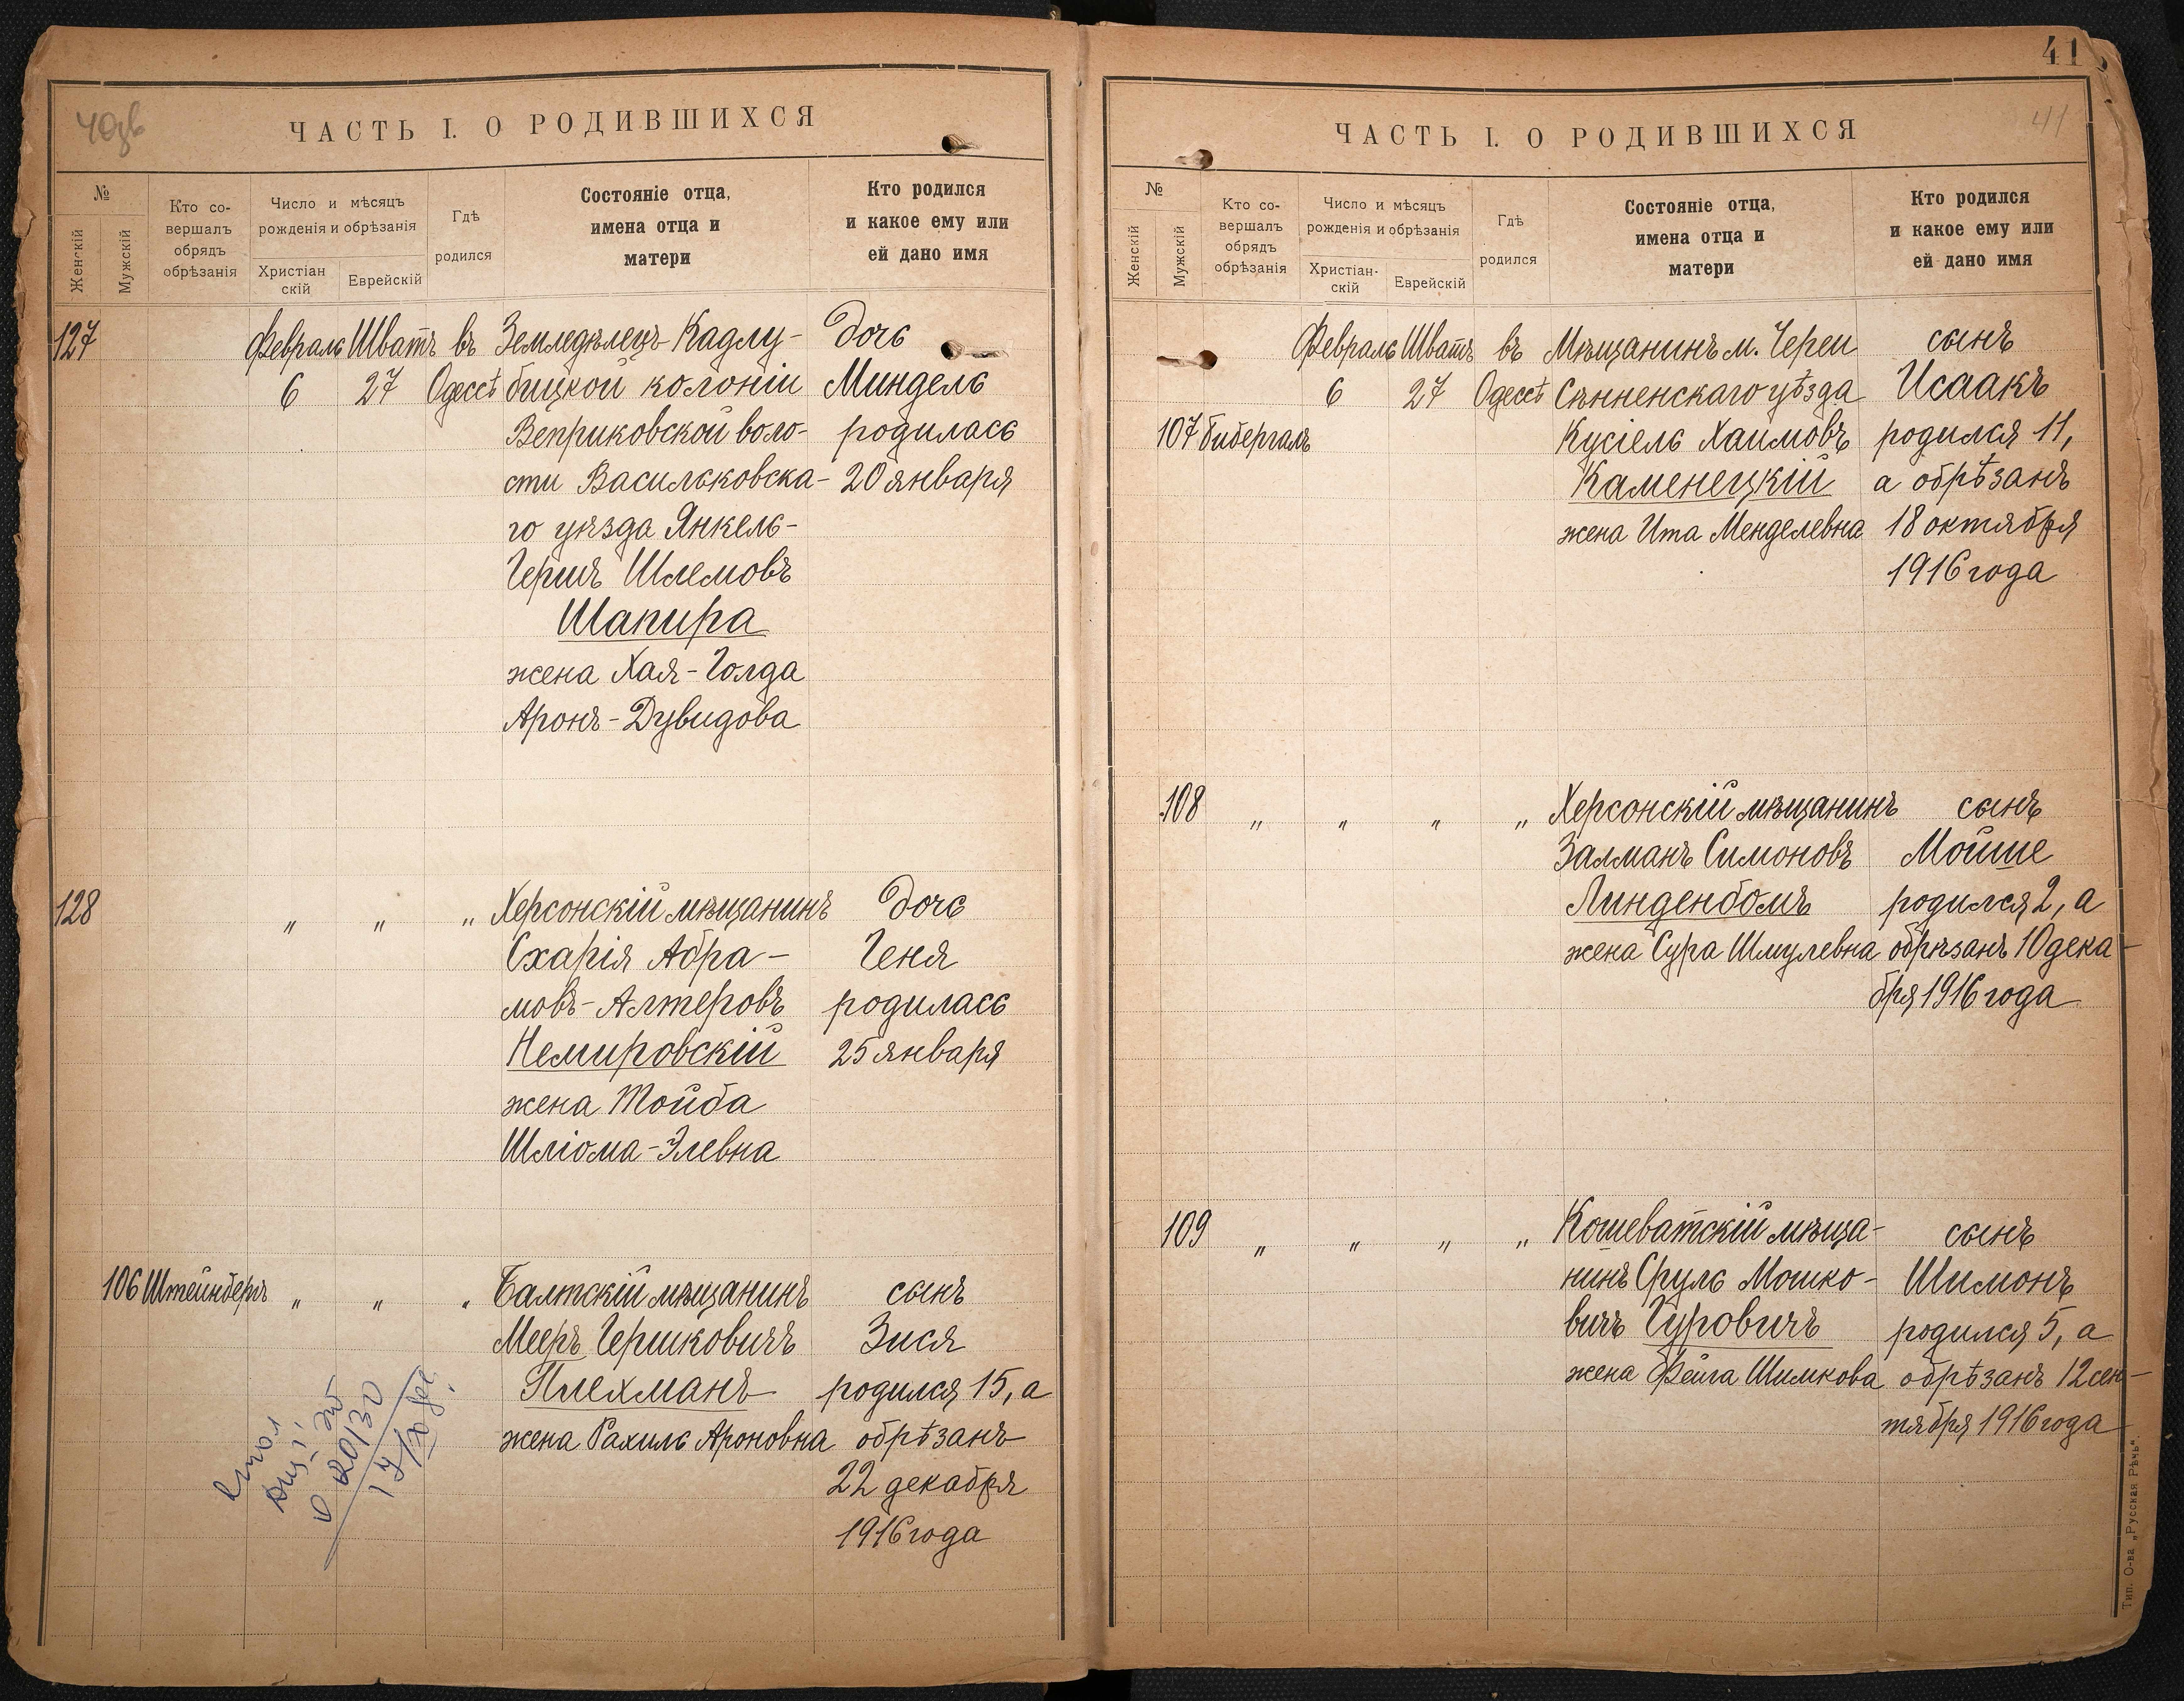 40зв
ЧАСТЬ I. О РОДИВШИХСЯ
№
Женскій
Мужскій
Кто со-
вершалъ
обрядъ
обрѣзанія
Число и мѣсяцъ
рожденія и обрѣзанія
Христіан
скій
Еврейскій
Гдѣ
родился
Состояніе отца,
имена отца и
матери
Кто родился
и какое ему или
ей дано имя
127 Февраль Шватъ въ Земледѣлецъ Кадлу- дочь
6 27 Одессѣ бицкой колоніи Миндель
Веприковской воло- родилась
сти Васильковска- 20 января
го уѣзда Янкель-
Гершъ Шлемовъ
Шапира
жена Хая-Голда
Аронъ-Дувидова
128 " " " Херсонскій мѣщанинъ дочь
Схарія Абра- Геня
мовъ-Алтеровъ родилась
Немировскій 25 января
жена Тойба
Шліома-Элевна
106 Штейнбергъ " " " Балтскій мѣщанинъ сынъ
Мееръ Гершковичъ Зися
Плехманъ родился 15, а
жена Рахиль Ароновна обрѣзанъ
22 декабря
1916 года
41
41
ЧАСТЬ I. О РОДИВШИХСЯ
№
Женскій
Мужскій
Кто со-
вершалъ
обрядъ
обрѣзанія
Число и мѣсяцъ
рожденія и обрѣзанія
Христіан-
скій
Еврейскій
Гдѣ
родился
Состояніе отца,
имена отца и
матери
Кто родился
и какое ему или
ей дано имя
Февраль Шватъ въ Мѣщанинъ м. Череи сынъ
6 27 Одессѣ Сѣнненскаго уѣзда Исаакъ
107 Бибергалъ Кусіель Хаимовъ родился 11,
Каменецкій а обрѣзанъ
жена Ита Менделевна 18 октября
1916 года
108 " " " " Херсонскій мѣщанинъ сынъ
Залманъ Симоновъ Мойше
Линденбомъ родился 2, а
жена Сура Шмулевна обрѣзанъ 10 дека-
бря 1916 года
109 " " " " Кошеватскій мѣща- сынъ
нинъ Сруль Мошко- Шимонъ
вичъ Гуровичъ родился 5, а
жена Фейга Шимкова обрѣзанъ 12 сен-
тября 1916 года
Тип. О-ва „Русская Рѣчь".